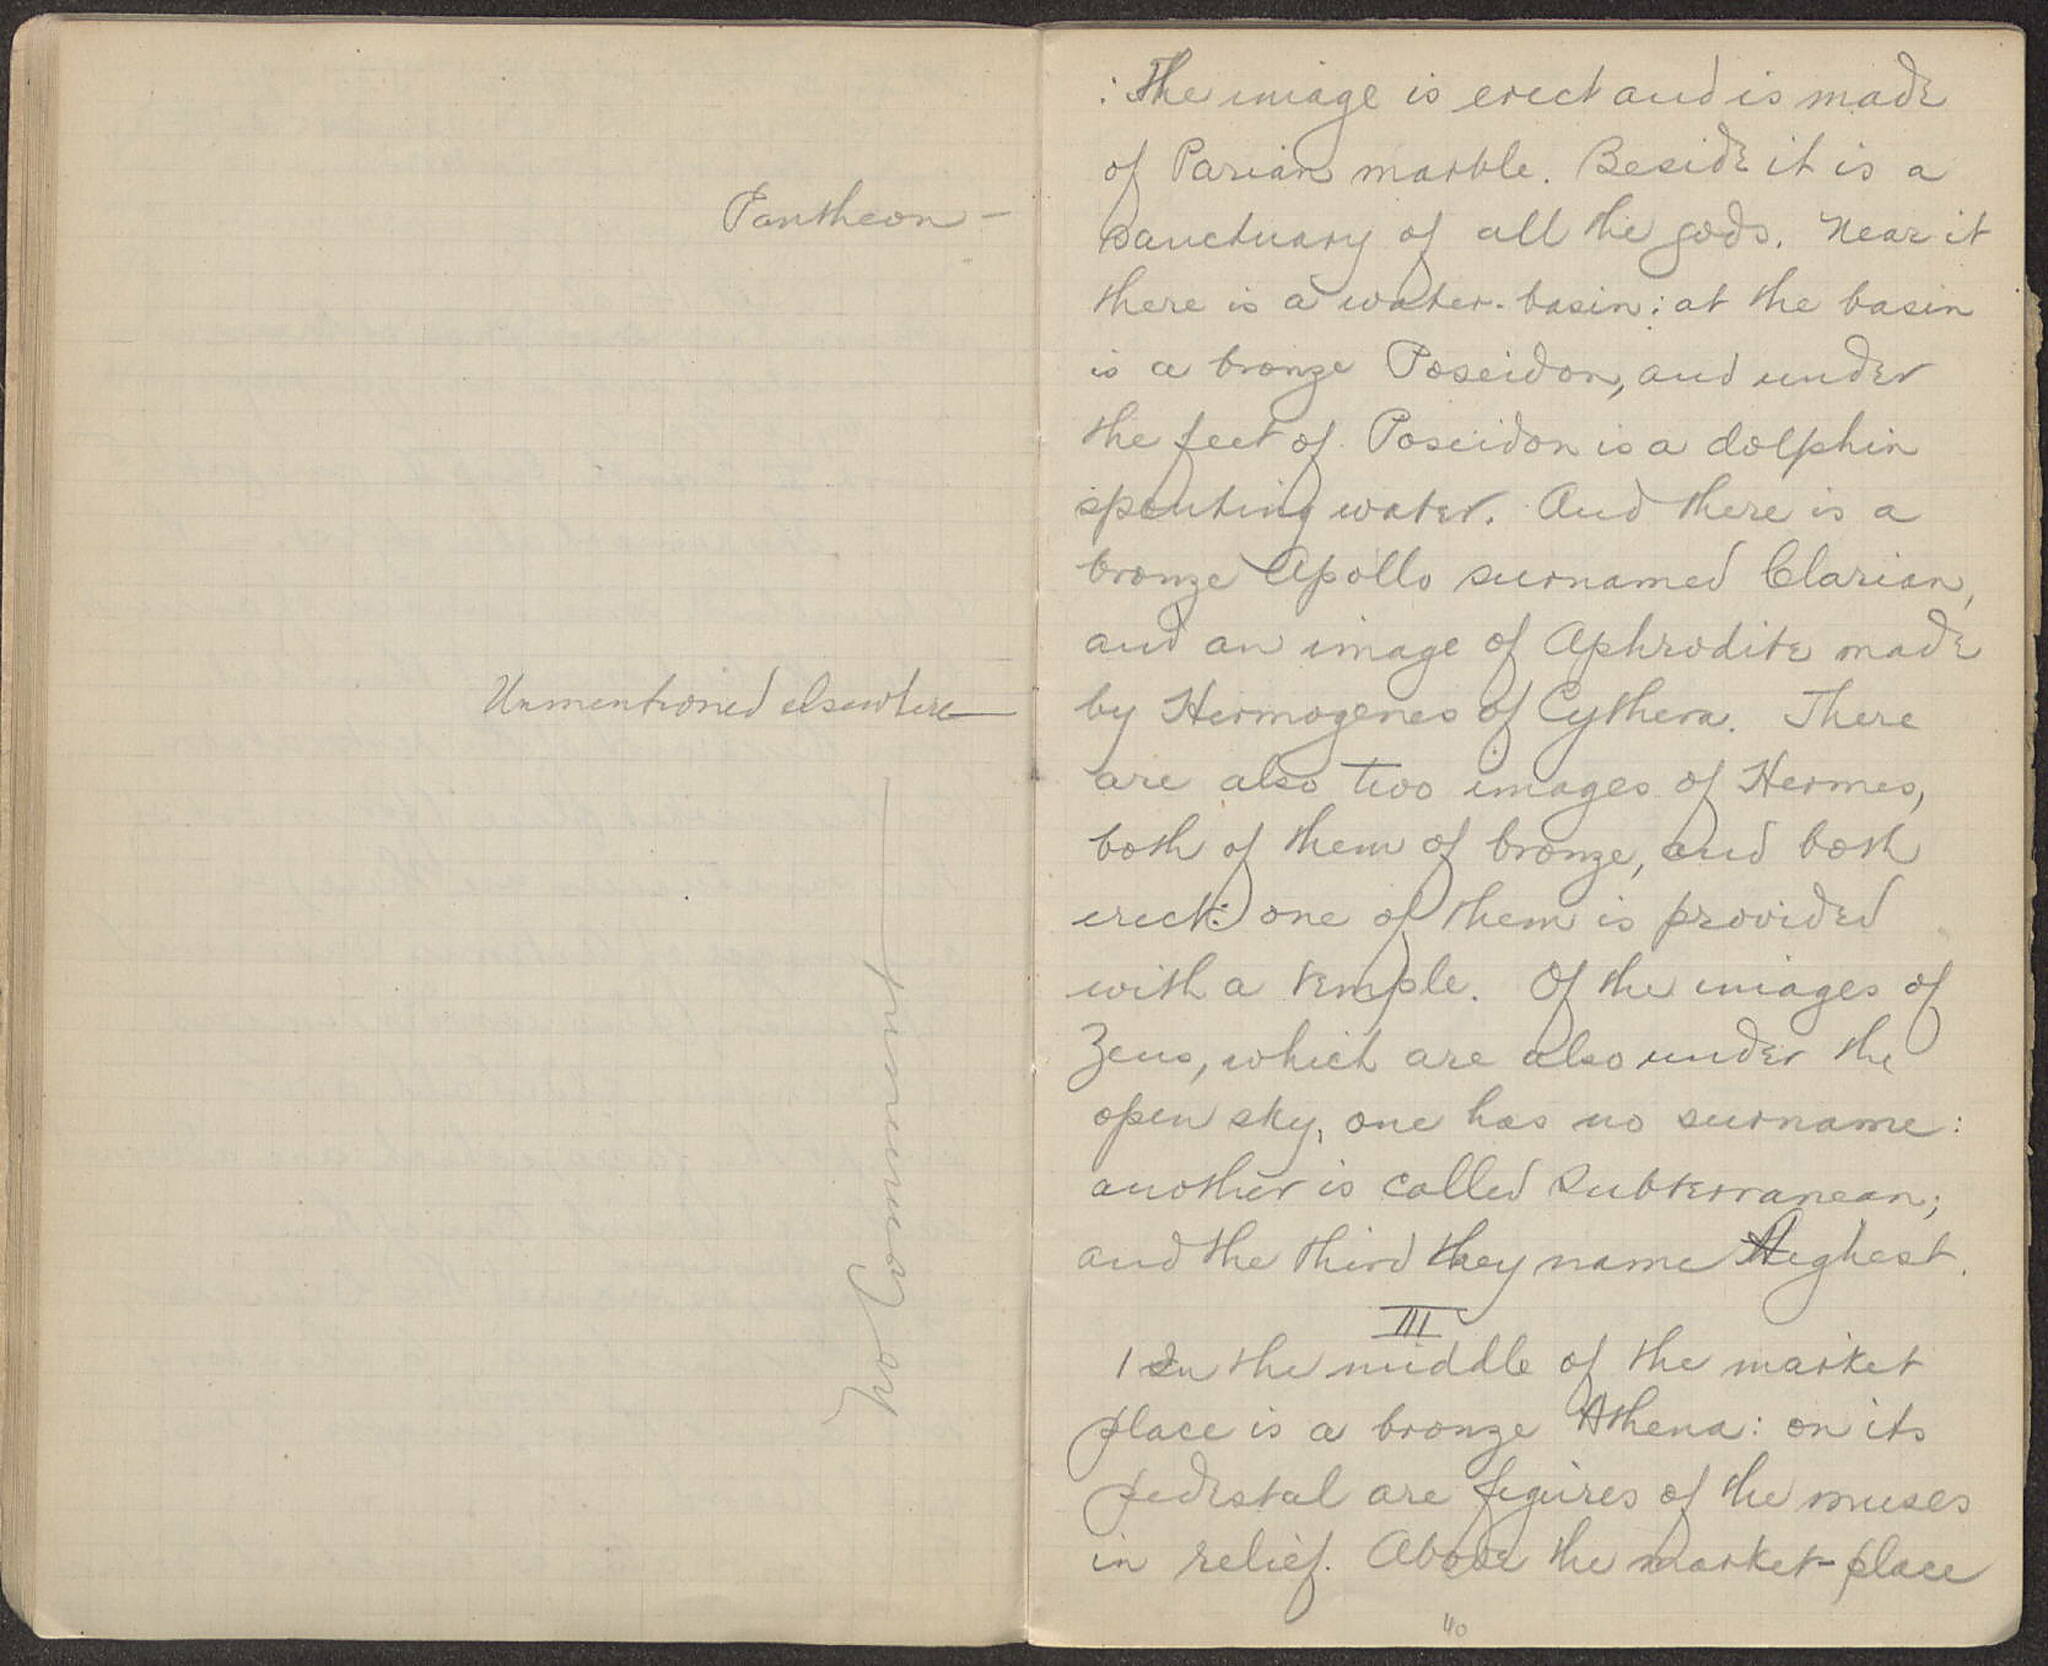 Pantheon —
Unmentioned elsewhere —
no Comment —
: The image is erect and is made
of Parian marble. Beside it is a
sanctuary of all the gods. Near it
there is a water-basin: at the basin
is a bronze Poseidon, and under
the feet of Poseidon is a dolphin
spouting water. And there is a
bronze Apollo surnamed Clarian,
and an image of Aphrodite made
by Hermogenes of Cythera. There
are also two images of Hermes,
both of them of bronze, and both
erect: one of them is provided
with a temple. Of the images of
Zeus, which are also under the
open sky, one has no surname:
another is called Subterranean;
and the third they name Highest.
III
1 In the middle of the market
place is a bronze Athena: on its
pedestal are figures of the muses
in relief. Above the market-place
40